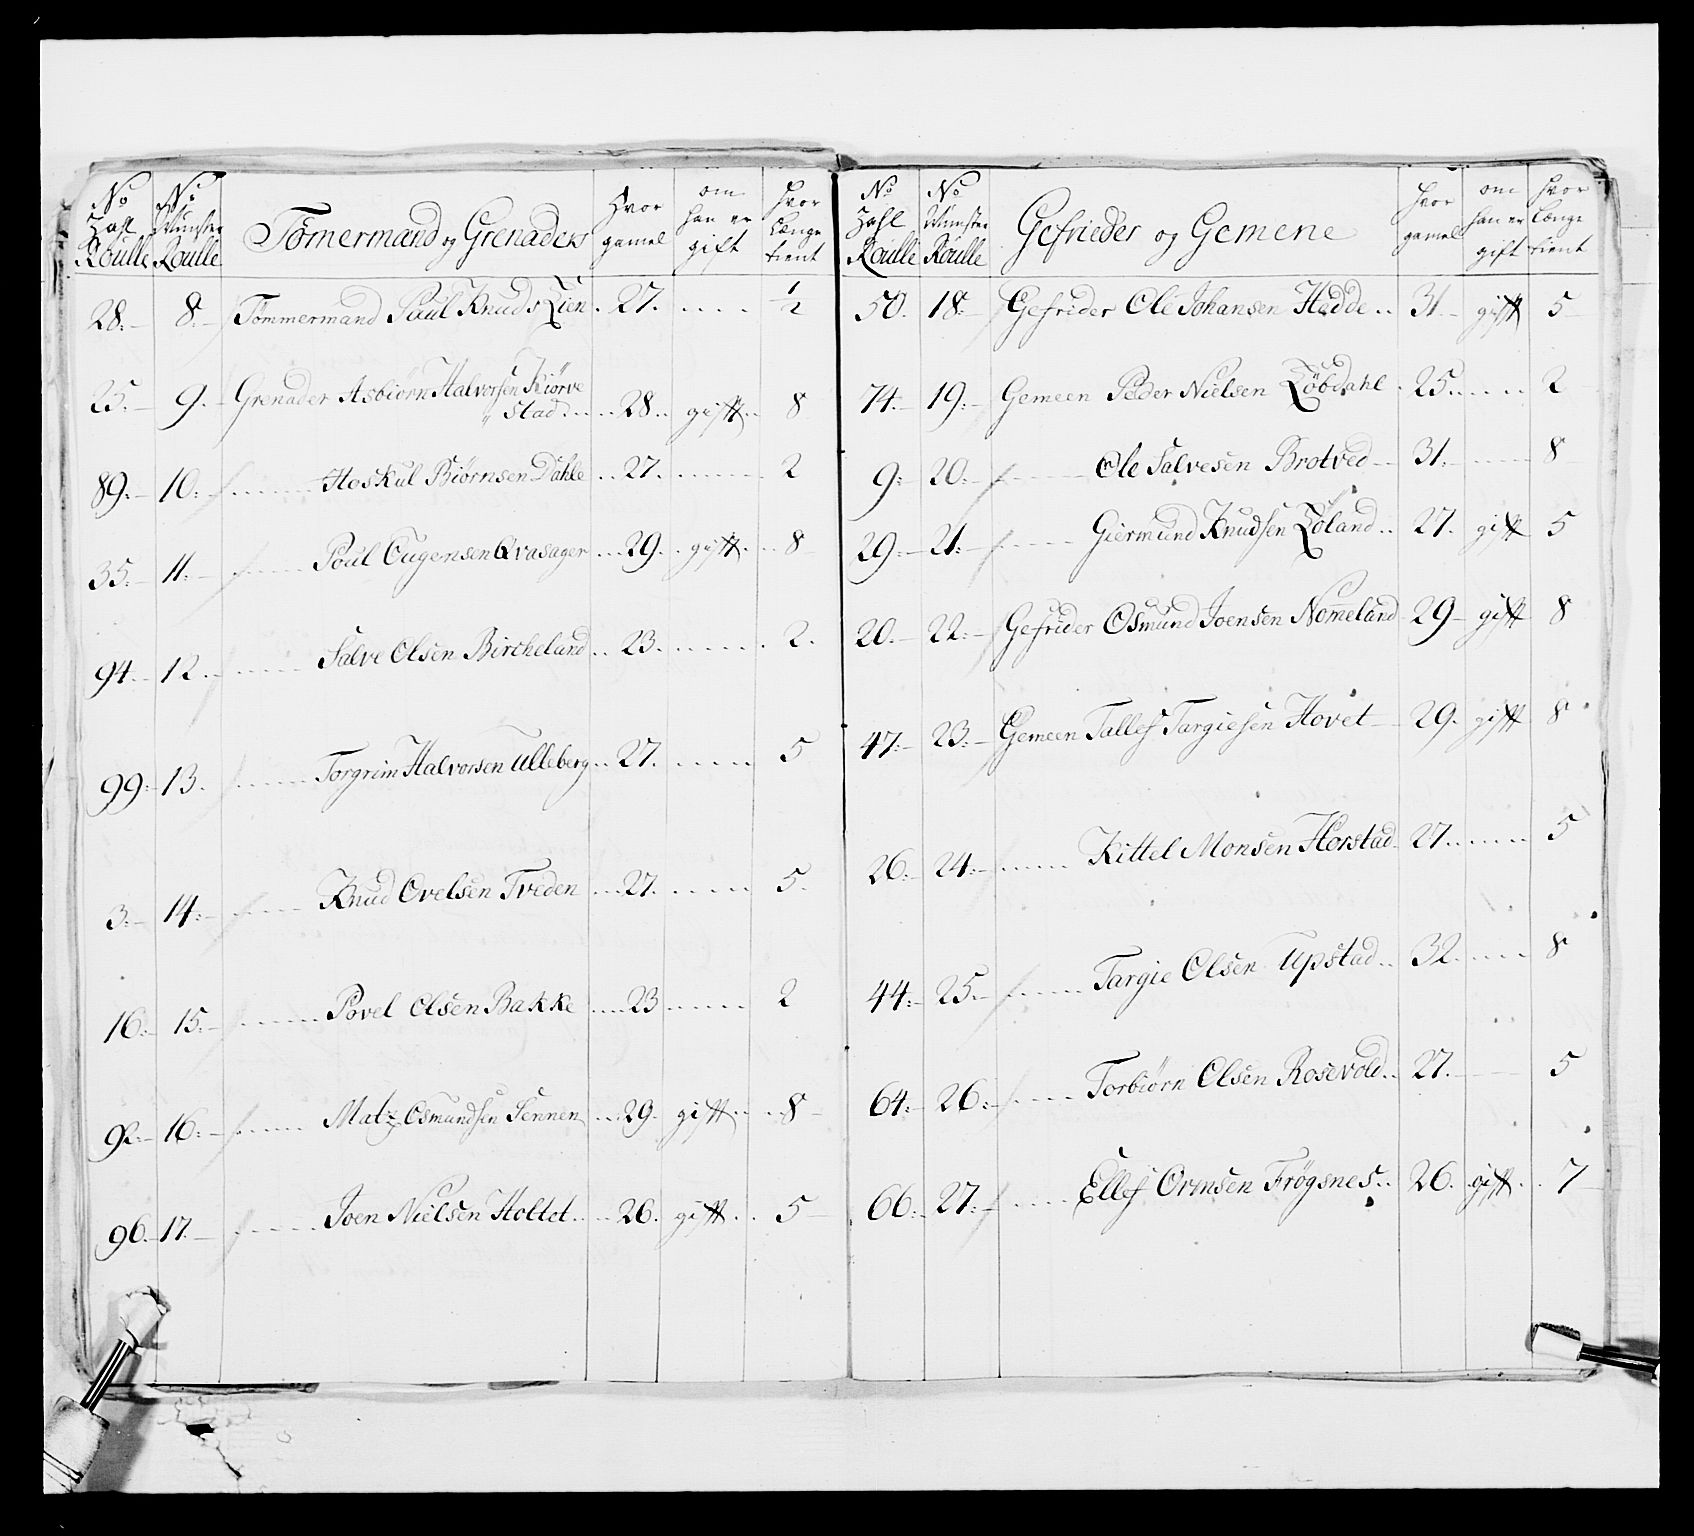 No Zahl Roulle | No Munster Roulle | Tømermand og Grenader | Hvor gamel | om han er gift | Hvor Længe tient
28. 8. Tømmermand Paul Knuds Lien 27. 1/2
25. 9. Grenader Asbiørn Halvorsen Kiørve
stad 28. gifft 8
89. 10. Hoskul Biørnsen Dahle 27. 2
35. 11. Poul Ougensen Qvasager 29. gifft 8
94. 12. Salve Olsen Bircheland 23. 2.
99. 13. Torgrim Halvorsen Ulleberg 27. 5
3. 14. Knud Ovelsen Tveden 27. 5.
16. 15. Povel Olsen Bakke 23 2
92. 16. Matz Osmundsen Sennen 29. gifft 8
96. 17. Joen Nielsen Holtet 26. gifft 5
No Zahl Roulle | No Munster Roulle | Gefrieder og Gemene | Hvor gamel | om han er gift | Hvor Længe tient
50. 18. Gefrider Ole Johansen Hedde 31. gifft 5
74. 19. Gemeen Peder Nielsen Løbdahl 25. 2
9. 20. Ole Salvesen Brotved 31. 8
29. 21. Giermund Knudsen Løland 27. gifft 5
20. 22. Gefrider Osmund Joensen Nomeland 29 gifft 8
47. 23. Gemeen Tallef Targiesen Hovet 29. gifft 8
26. 24. Kittel Monsen Horstad 27. 5
44. 25. Targie Olsen Upstad 32. 8
64. 26. Torbiørn Olsen Rosevold 27. 5
66. 27. Ellef Ormsen Frøgsnes 26. gifft 7